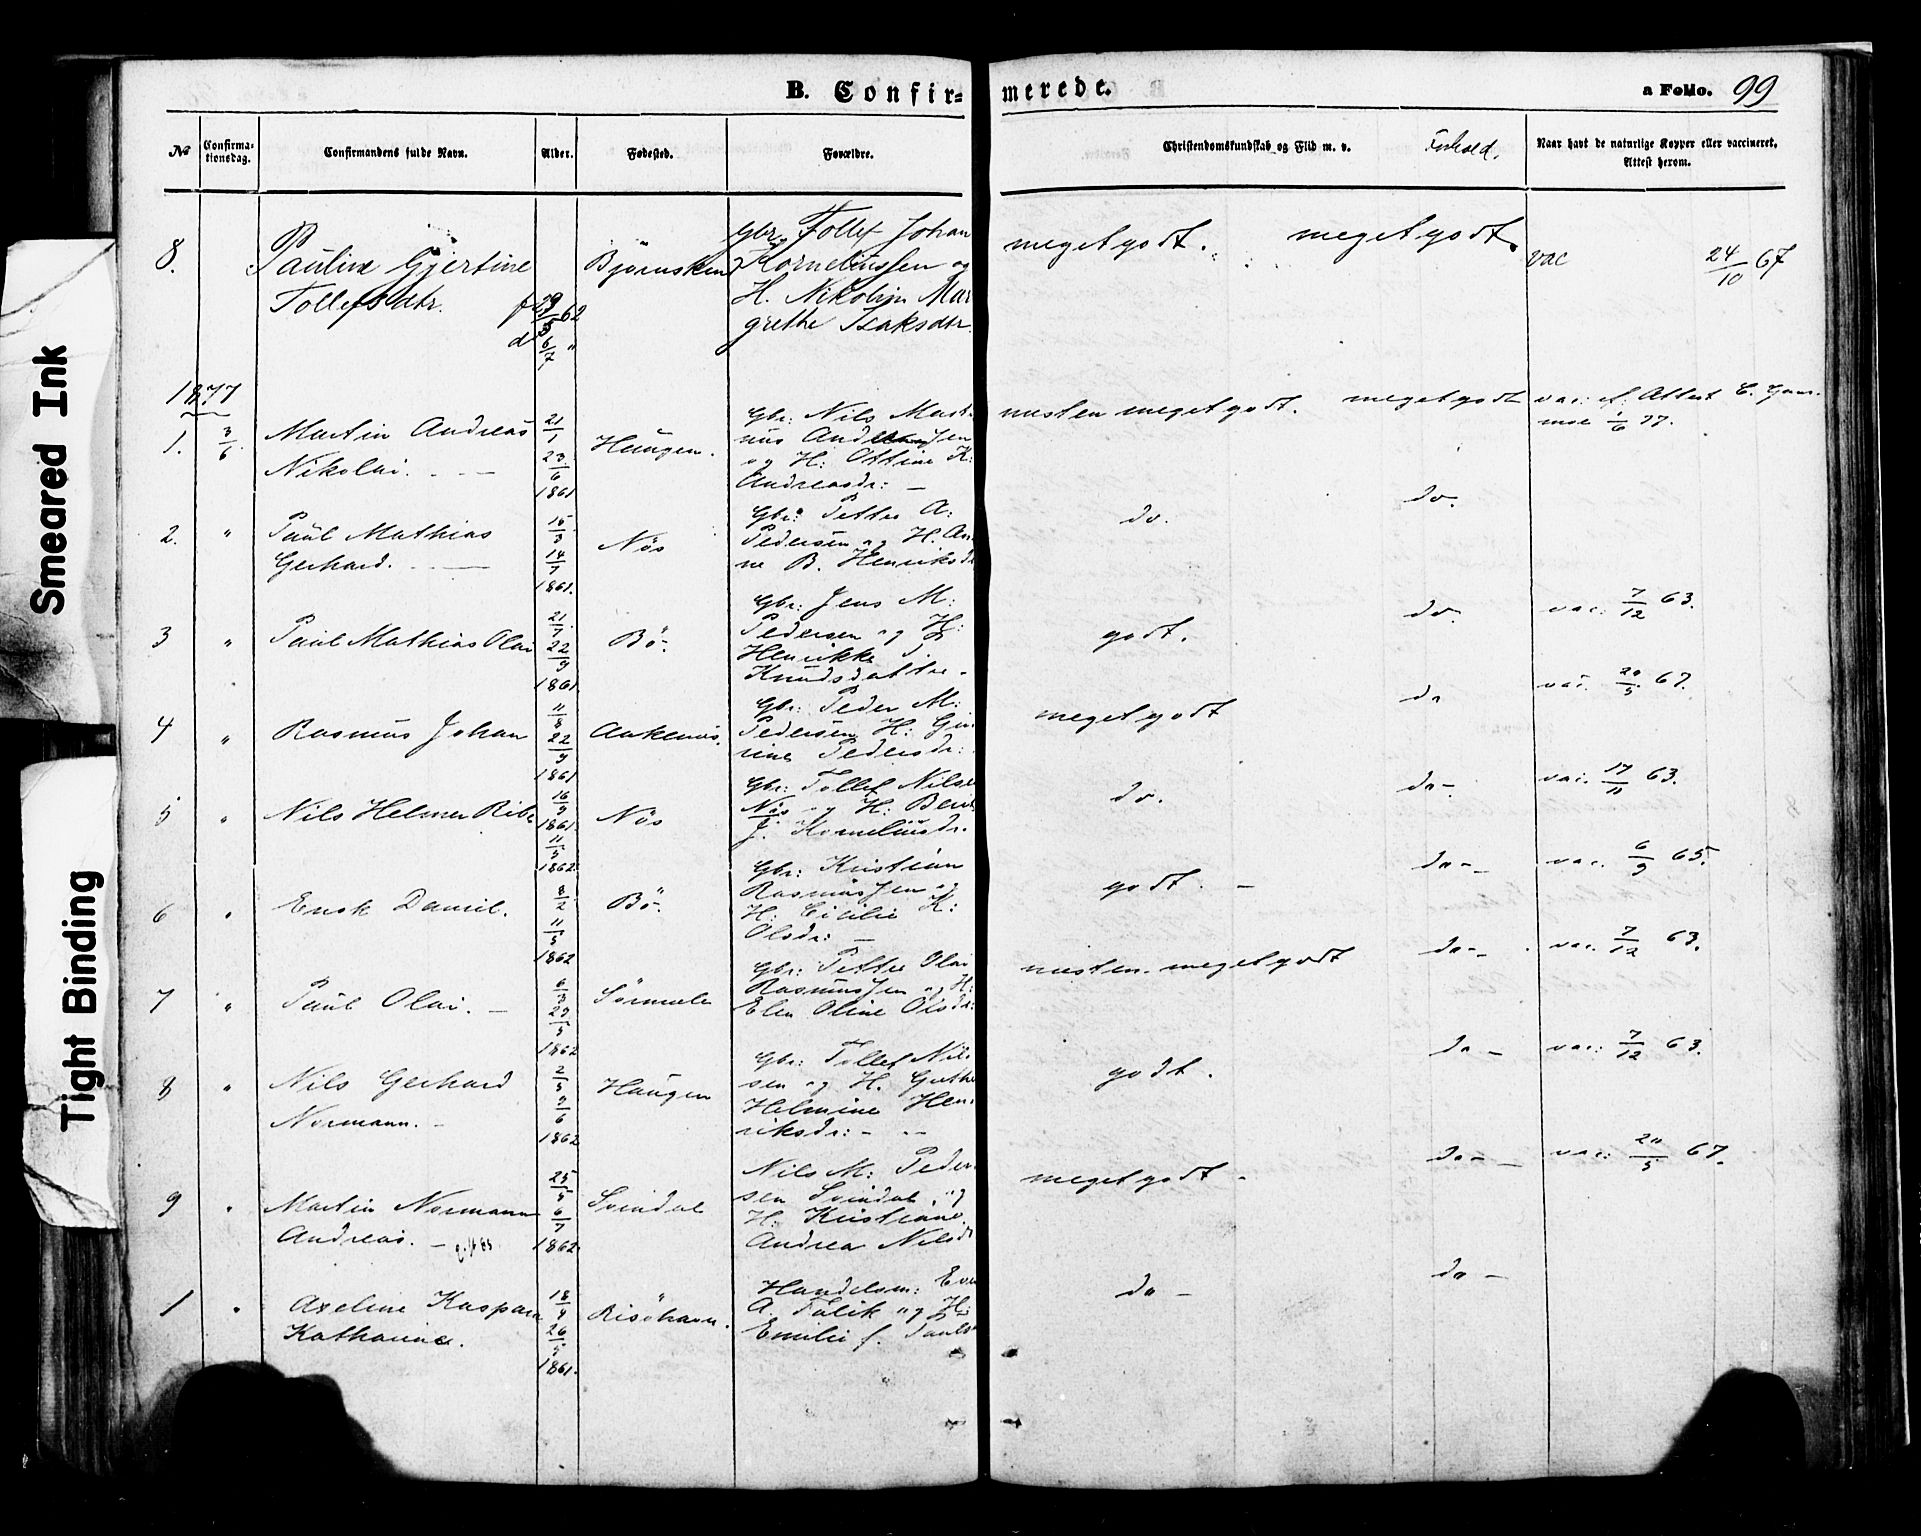 B. Confir=
merede.
a Folio. 99
No
Confirma-
tionsdag.
Confirmandens fulde Navn.
Alder.
Fødested.
Forældre.
Christendomskundskab og Flid m. v.
Forhold.
Naar havt de naturlige Kopper eller vaccineret,
Attest herom.
8.
Pauline Gjertine
Tollefsdtr.
f 29/5 62
d 6/7 "
Gbr. Tollef Johan
Korneliussen og
H. Nikolin Mar
grethe Isaksdtr.
meget godt.
meget godt.
vac 24/10 67
1877
1. 3/6
Martin Andreas
Nikolai.
21/1
23/6
1861
Haugen.
Gbr: Nils Mart-
nus Andreassen
og H: Ottine K:
Andreasdr:
næsten meget godt.
meget godt
vac: cf. Attest
1/6 77.
2. "
Paul Mathias
Gerhard.
15/3
14/7
1861.
Nøs
Gbr: Petter A:
Pedersen og H. An
ne B. Henriksd
do.
do.
3 "
Paul Mathias Olai
21/7
22/9
1861
Bø.
Gbr: Jens M:
Pedersen og H:
Henrikke
Knudsdatter.
godt.
do.
vac: 7/12 63.
4 "
Rasmus Johan
11/8
22/9
1861
Gbr: Peder M:
Pedersen H:
Pedersdr:
meget godt
do
vac. 20/5 67.
5 "
Nils Helmer
16/9
1861
11/5
1862
Nøs
Gbr: Tollef Nilse
Nøs og H: Bern
J. Korneliusdr.
do.
do-
vac. 17/11 63.
6 "
Enok Daniel.
8/2
11/5
1862
Bø.
Gbr: Kristian
Rasmussen og
H: Cicilie K:
Olsdr:
godt.
do-
vac. 6/9 65.
7 "
Paul Olai.
6/3
29/5
1862
Gbr: Petter Olai
Rasmussen og H:
Elen Oline Olsdr:
næsten meget godt
do-
vac. 7/12 63.
8 "
Nils Gerhard
Normann.
2/5
9/6
1862
Haugen
Gbr: Tollef Nil
sen og H. Grethe
Helmine Hen-
riksdr:
godt.
do-
vac: 7/12 63.
9 "
Martin Normann
Andreas.
25/5
6/7
1862
Svindal
Nils M: Peder
sen Svindal og
H: Kristiane
Andrea Nilsd
meget godt.
do-
vac: 20/5 67.
1 "
Axeline Kaspara
Katharina.
18/4
26/5
1861.
Risøhavn.
Handelsm:
A. Falik og H:
Emilie f.
do-
do-
Smeared Ink
Tight Binding